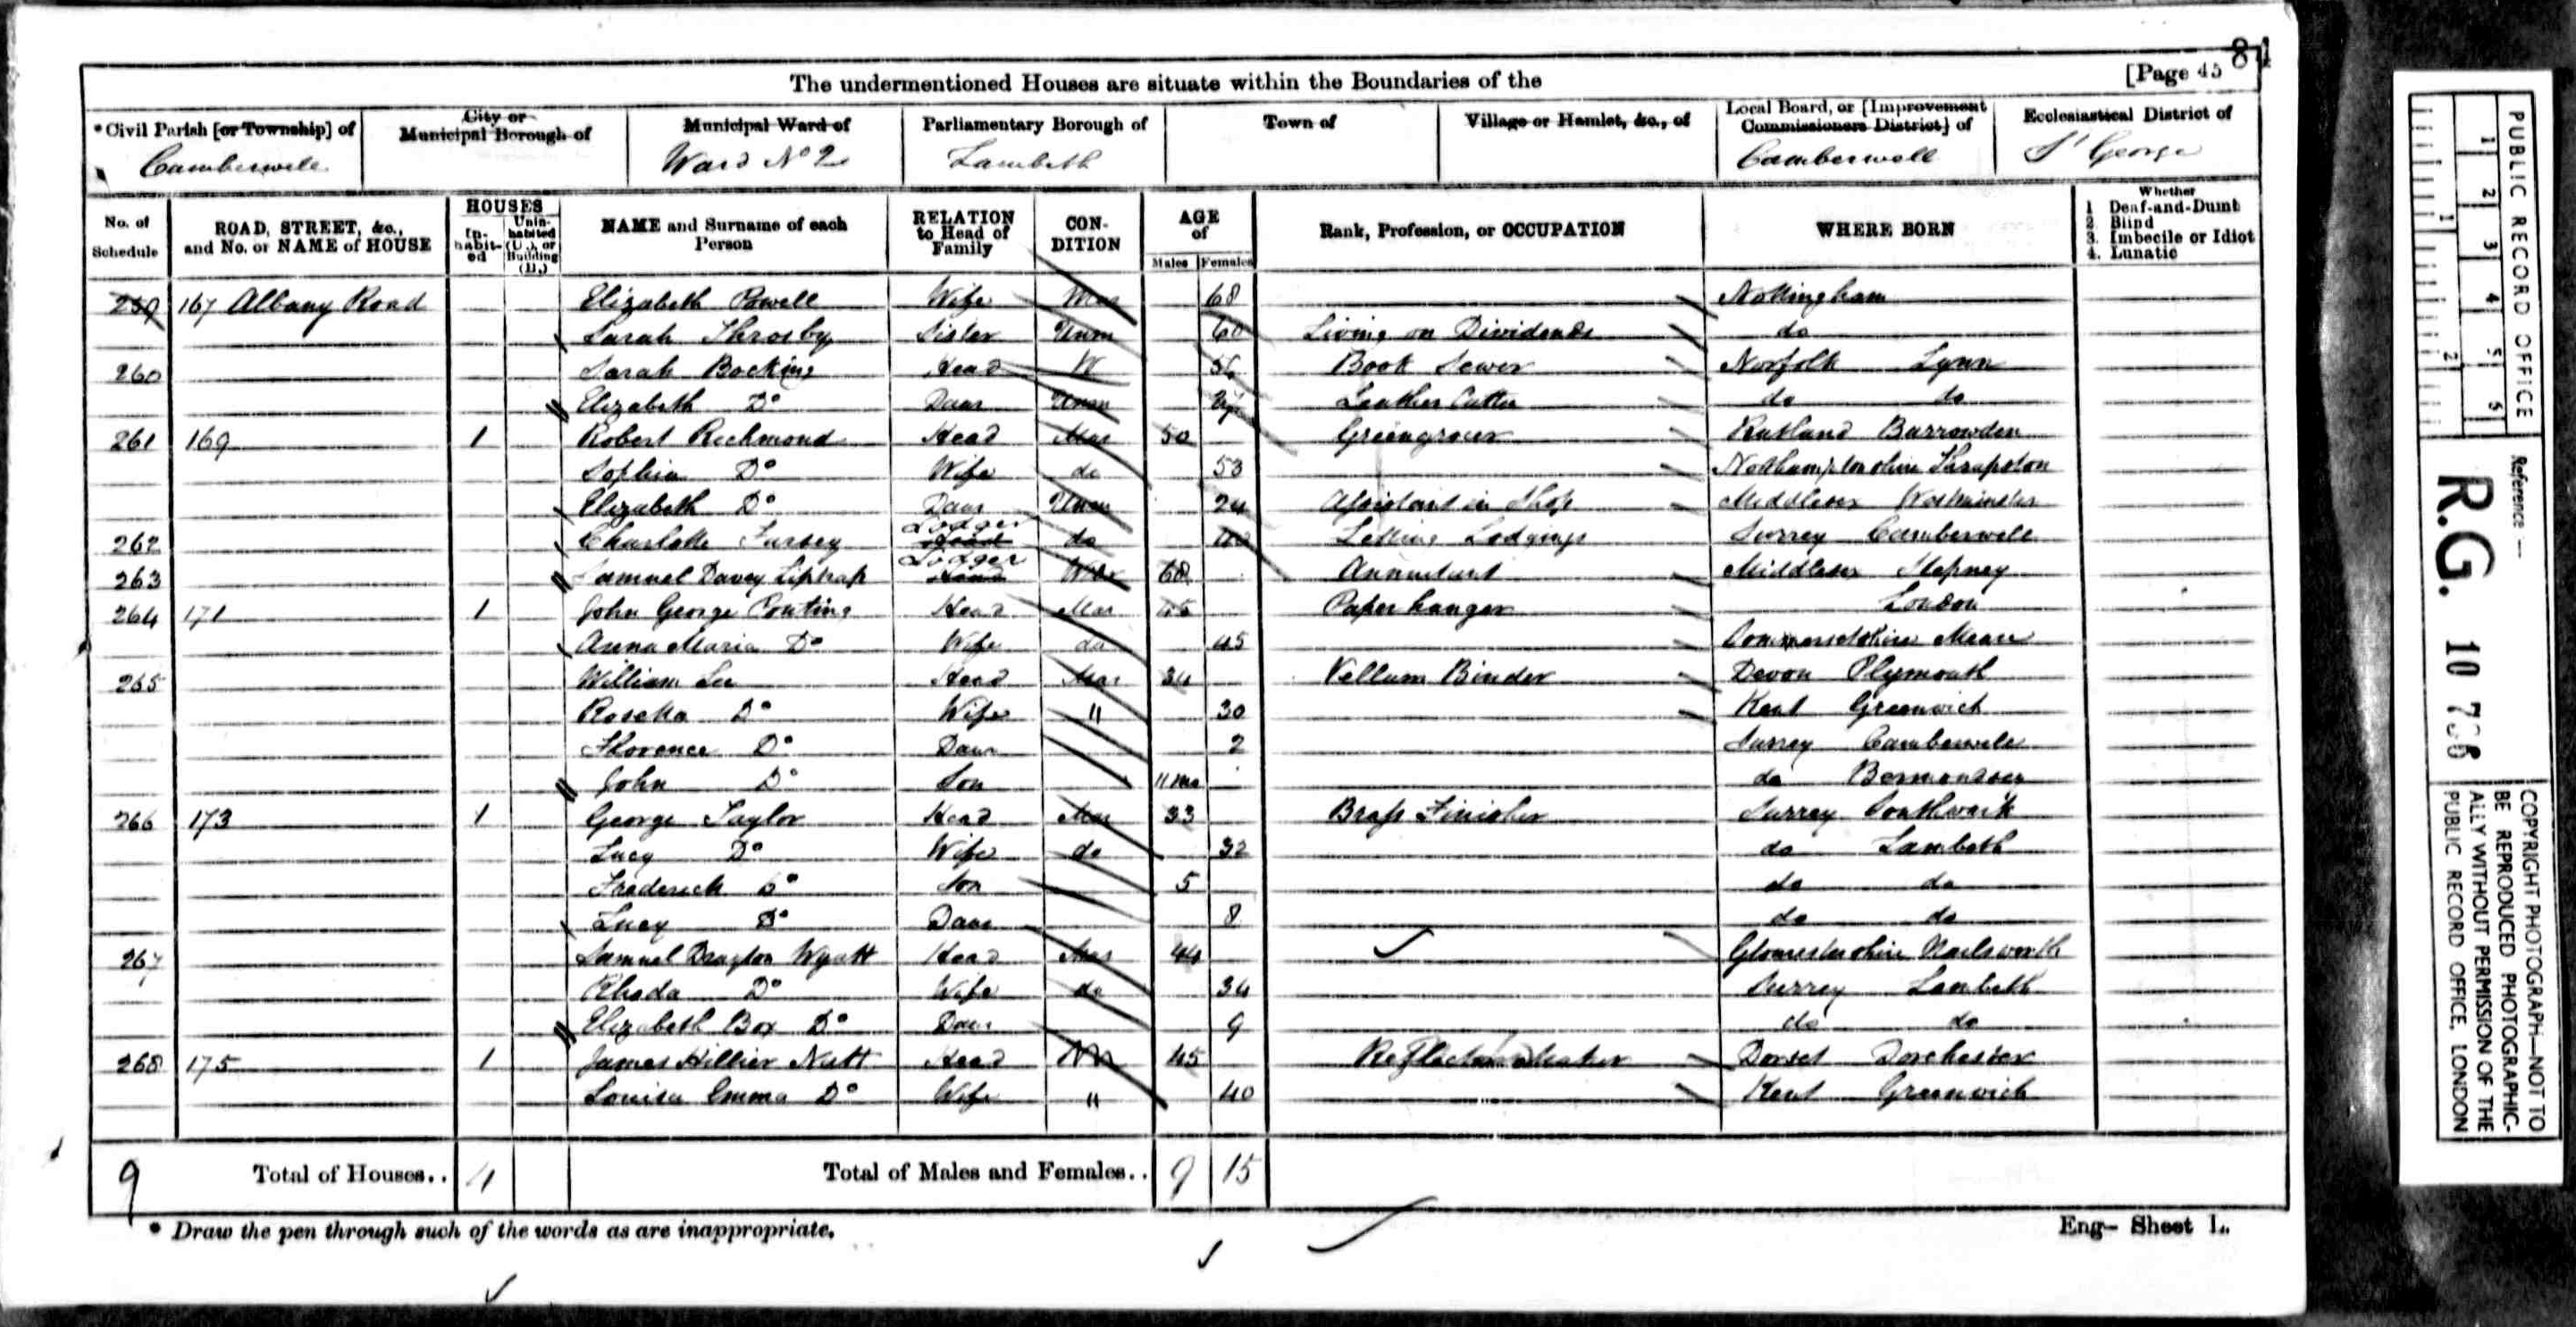 84
The undermentioned Houses are situate within the Boundaries of the [Page 45
*Civil Parish [or Township] of City or Municipal Borough of Municipal Ward of Parliamentary Borough of Town of Village or Hamlet, &c., of Local Board, or [Improvement Commissioners District] of Ecclesiastical District of
Camberwell Ward No 2 Lambeth Camberwell St George
No. of Schedule ROAD, STREET, &c., and No. or NAME of HOUSE HOUSES In-habit-ed Unin-habited (U.), or Building (B.) NAME and Surname of each Person RELATION to Head of Family CON-DITION AGE of Males Females Rank, Profession, or OCCUPATION WHERE BORN Whether 1 Deaf-and-Dumb 2 Blind 3. Imbecile or Idiot 4. Lunatic
259 167 Albany Road Elizabeth Powell Wife Mar 68 Nottingham
Sarah Throsby Sister Unm 60 Living on Dividends do
260 Sarah Bocking Head W 56 Book Sewer Norfolk Lynn
Elizabeth Do Daur Unm Leather Cutter do do
261 169 1 Robert Richmond Head Mar 50 Greengrocer Rutland Barrowden
Sophia Do Wife do 53 Northamptonshire Thrapston
Elizabeth Do Daur Unm 24 Assistant in Shop Middlesex Westminster
262 Charlotte Fursey Lodger Head do 40 Letting Lodgings Surrey Camberwell
263 Samuel Davey Liptrap Lodger Head 68 Annuitant Middlesex Stepney
264 171 1 John George Ponting Head Mar 45 Paper hanger London
Anna Maria Do Wife do 45 Somersetshire Meare
265 William Lee Head Mar 34 Vellum Binder Devon Plymouth
Rosetta Do Wife " 30 Kent Greenwich
Florence Do Daur 2 Surrey Camberwell
John Do Son 11 mo do Bermondsey
266 173 1 George Taylor Head Mar 33 Brass Finisher Surrey Southwark
Lucy Do Wife do 32 do Lambeth
Frederick Do Son 5 do do
Lucy Do Daur 8 do do
267 Samuel Drayton Wyatt Head Mar 44 Gloucestershire Nailsworth
Rhoda Do Wife do 34 Surrey Lambeth
Elizabeth Box Do Daur 9 do do
268 175 1 James Hillier Nutt Head M 45 Reflector Maker Dorset Dorchester
Louisa Emma Do Wife " 40 Kent Greenwich
9 Total of Houses.. 4 Total of Males and Females.. 9 15
* Draw the pen through such of the words as are inappropriate.
Eng- Sheet L.
PUBLIC RECORD OFFICE
1 2 3 4 5 1 2
Reference —
R.G. 10
COPYRIGHT PHOTOGRAPH—NOT TO
BE REPRODUCED PHOTOGRAPHIC-
ALLY WITHOUT PERMISSION OF THE
PUBLIC RECORD OFFICE, LONDON